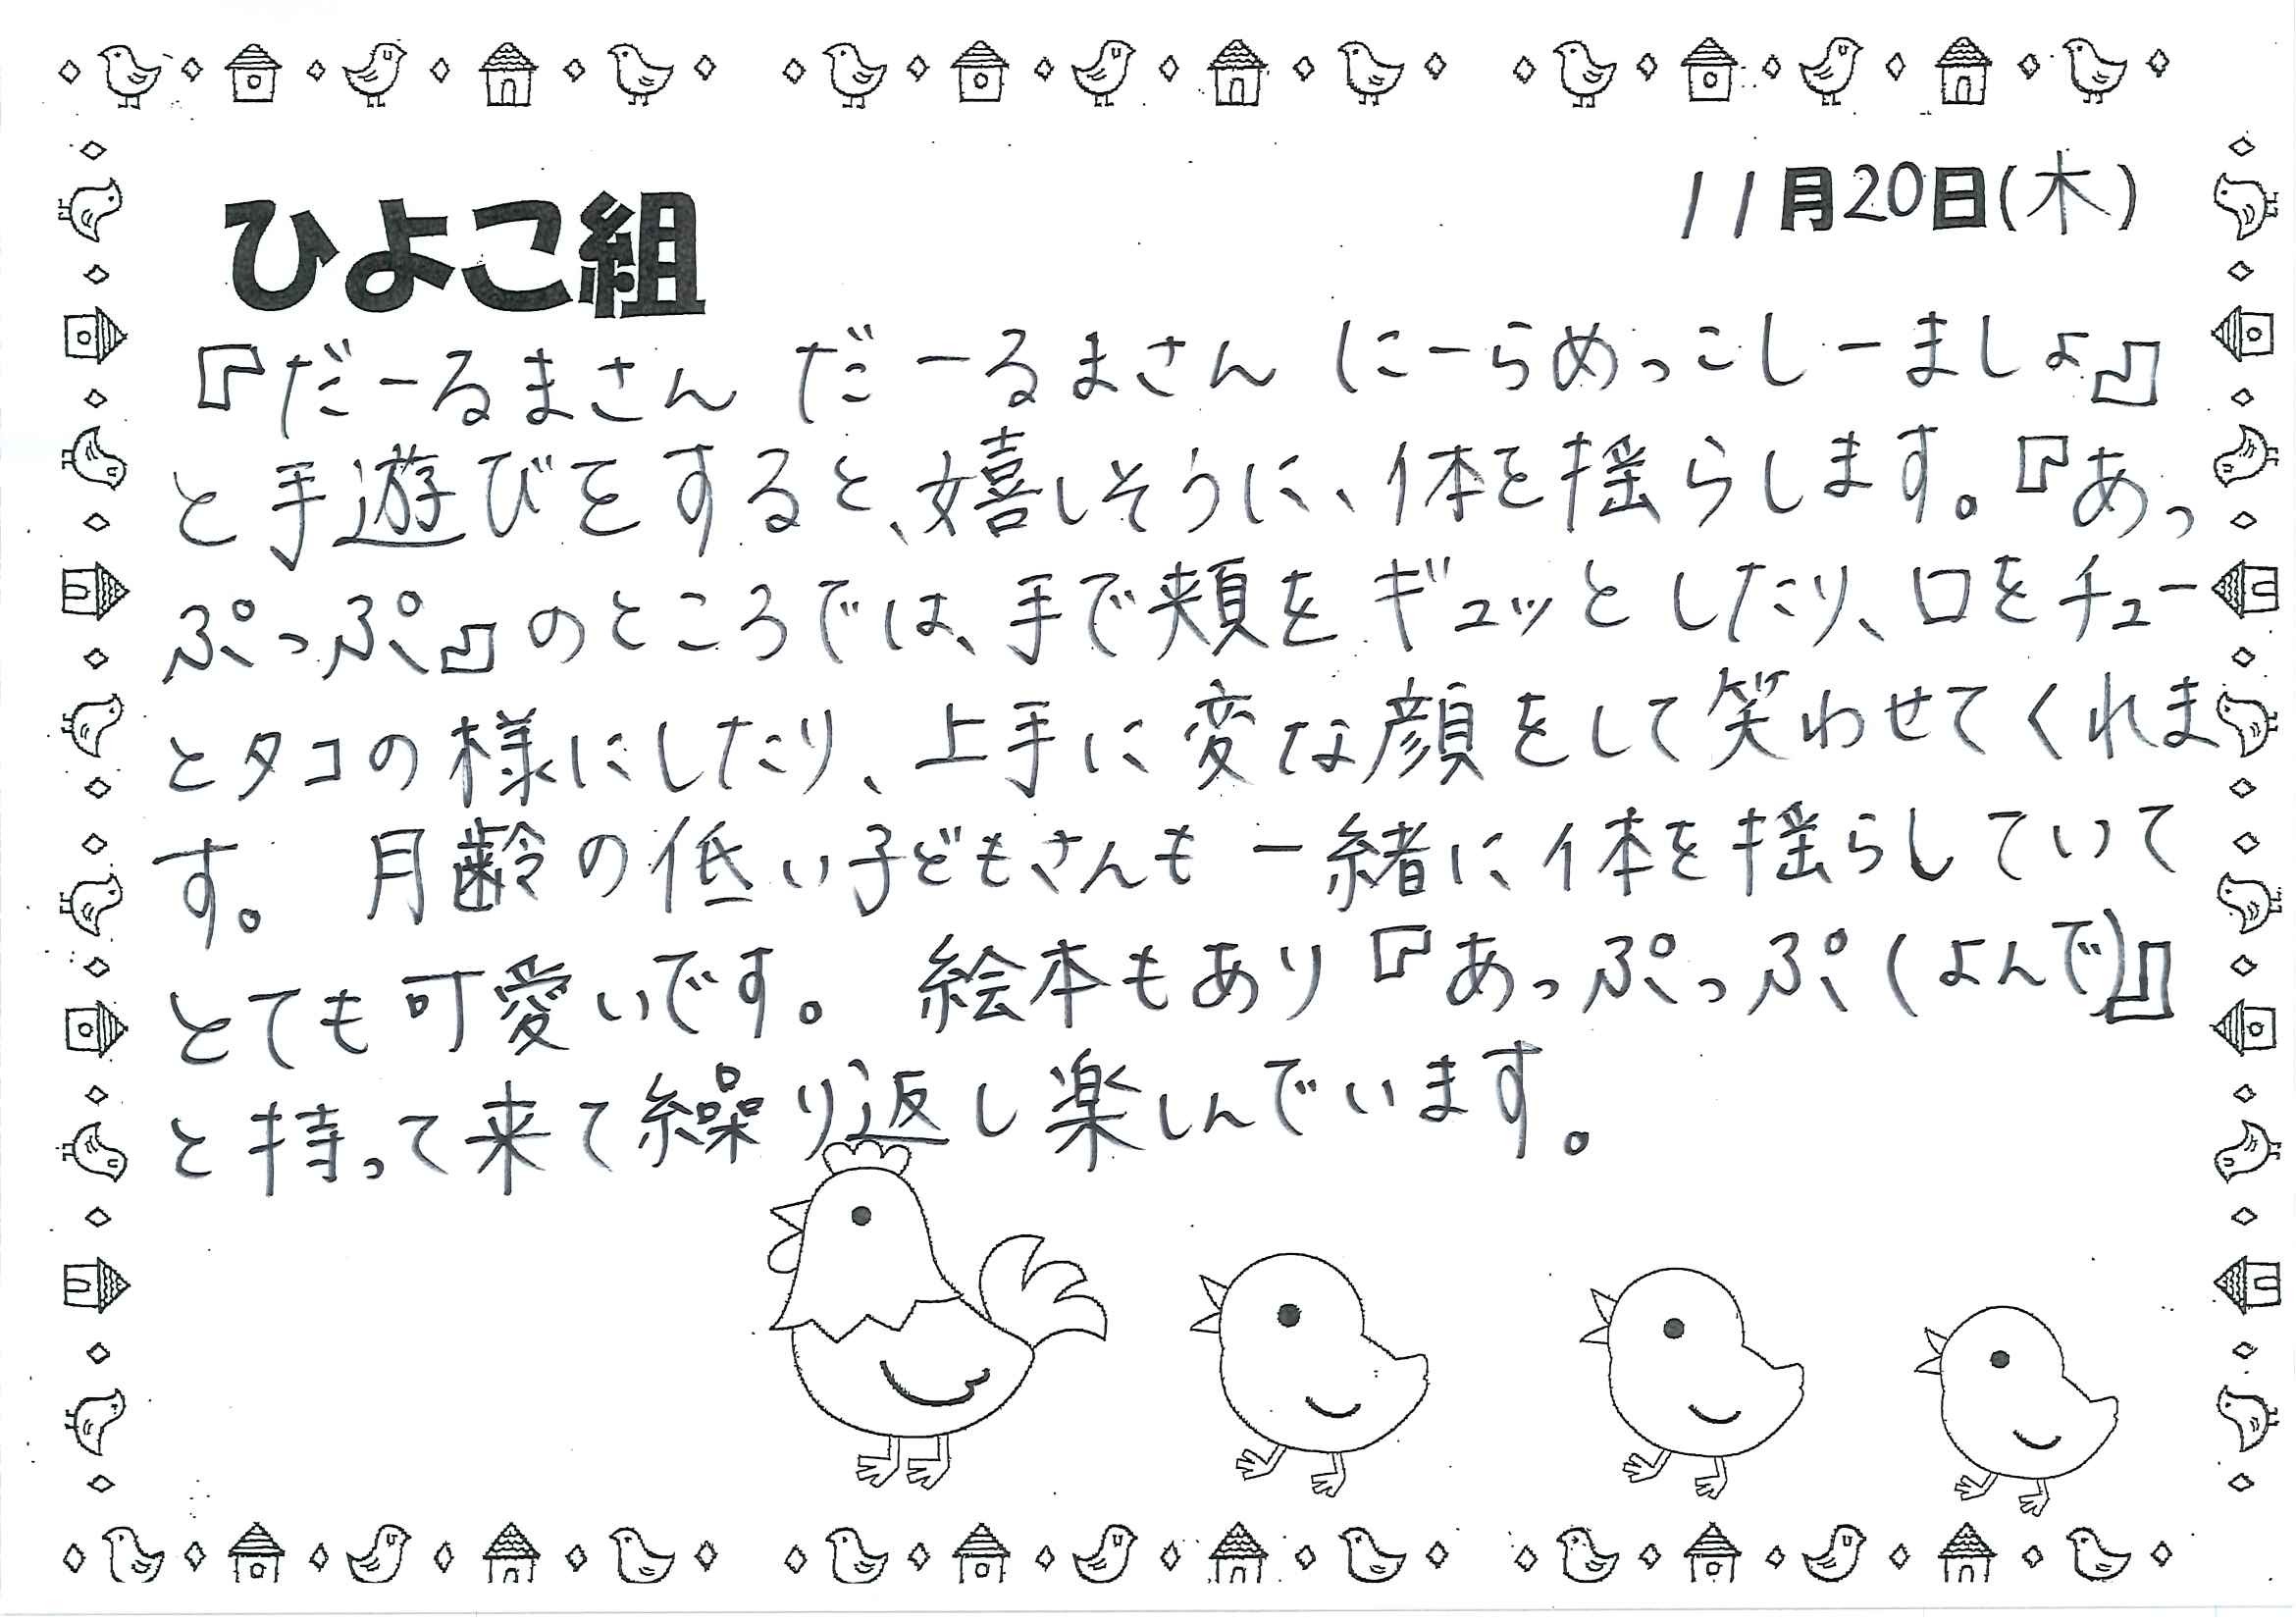 11月20日(木)
ひよこ組
『だーるまさん だーるまさん にーらめっこしーましょ』
と手遊びをすると、嬉しそうに、体を揺らします。『あっ
ぷっぷ』のところでは、手で頬をギュッとしたり、口をチュー
とタコの様にしたり、上手に変な顔をして笑わせてくれま
す。 月齢の低い子どもさんも一緒に体を揺らしていて
とても可愛いです。 絵本もあり『あっぷっぷ(よんで)』
と持って来て繰り返し楽しんでいます。